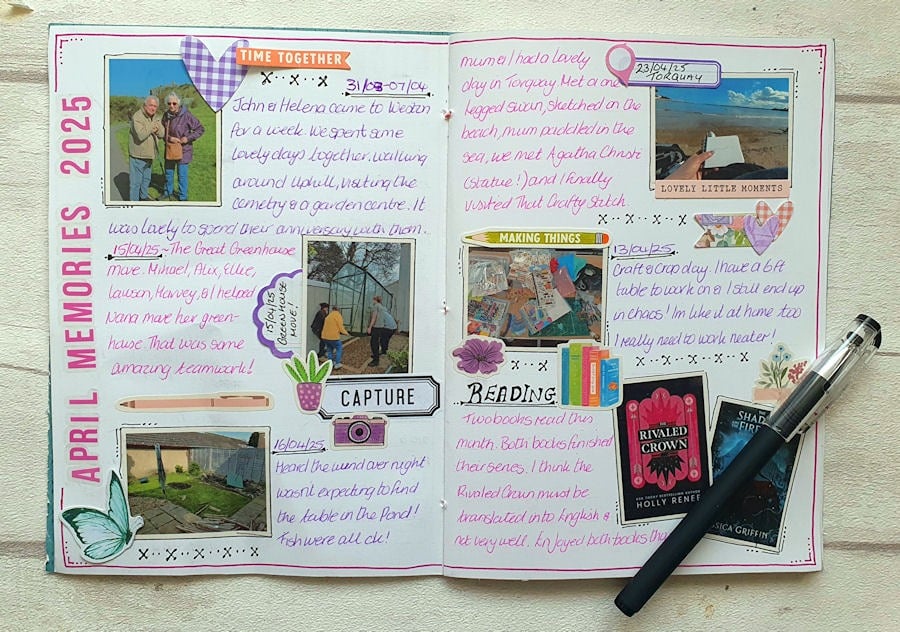 APRIL MEMORIES 2025
TIME TOGETHER
31/03-07/04
John & Helena came to Weston
for a week. We spent some
lovely days together. walking
around Uphill, visiting the
cemetry & a garden centre. It
was lovely to spend their anniversary with them.
15/04/25 ~ The Great Greenhouse
move. Mikael, Alix, Ellie,
Lawson, Harvey, & I helped
Nana move her green-
house. That was some
amazing teamwork!
15/04/25
GREENHOUSE
MOVE!
CAPTURE
16/04/25
Heard the wind over night
wasn't expecting to find
the table in the Pond!
Fish were all ok!
mum & I had a lovely
day in Torquay. Met a one
legged swan, sketched on the
beach, mum paddled in the
sea, we met Agatha Christi
(statue!) and I finally
visited That Crafty Stitch.
23/04/25
TORQUAY
LOVELY LITTLE MOMENTS
MAKING THINGS
13/04/25
Craft & Crop day. I have a 6ft
table to work on & I still end up
in chaos! Im like it at home too
I really need to work neater!
READING
Two books read this
month. Both books finished
their series. I think the
Rivaled Crown must be
translated into English &
not very well. Enjoyed both books
THE
RIVALED
CROWN
USA TODAY BESTSELLING AUTHOR
HOLLY RENEE
THE
FIRE
SSICA GRIFFIN